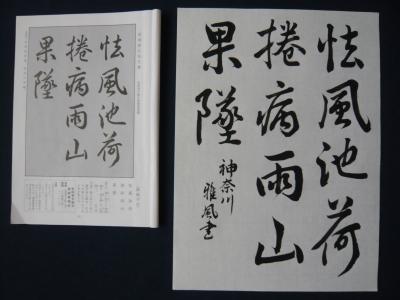 怯風池荷
捲病雨山
果墜
怯風池荷
捲病雨山
果墜
神奈川
雅風書